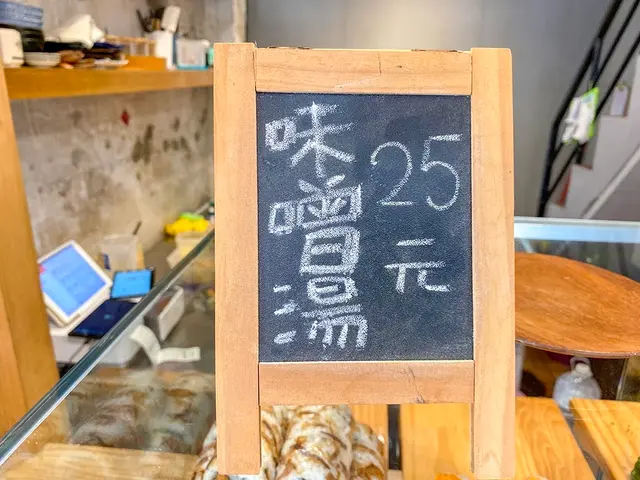 味噌湯
25元